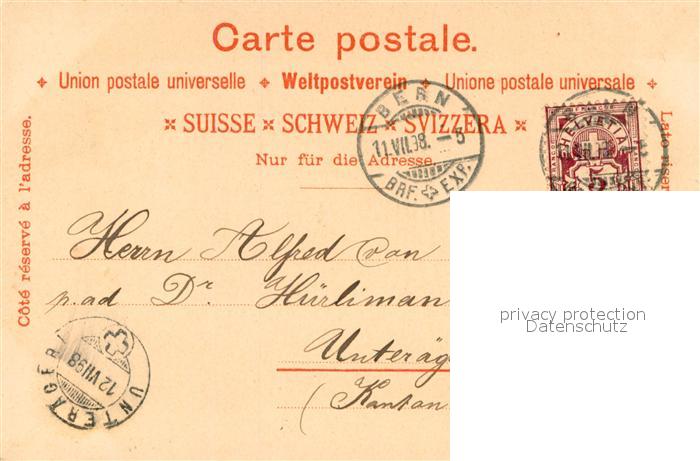 Carte postale.
Union postale universelle Weltpostverein Unione postale universale
SUISSE SCHWEIZ SVIZZERA
Nur für die Adresse.
Côté réservé à l'adresse.
BERN
11.VII.98. – 5
BRF. EXP.
HELVETIA
5
Herrn Alfred von
p. ad Dr Hürliman
Unteräg
(Kanton
UNTERAGERI
12 VII 98
privacy protection
Datenschutz